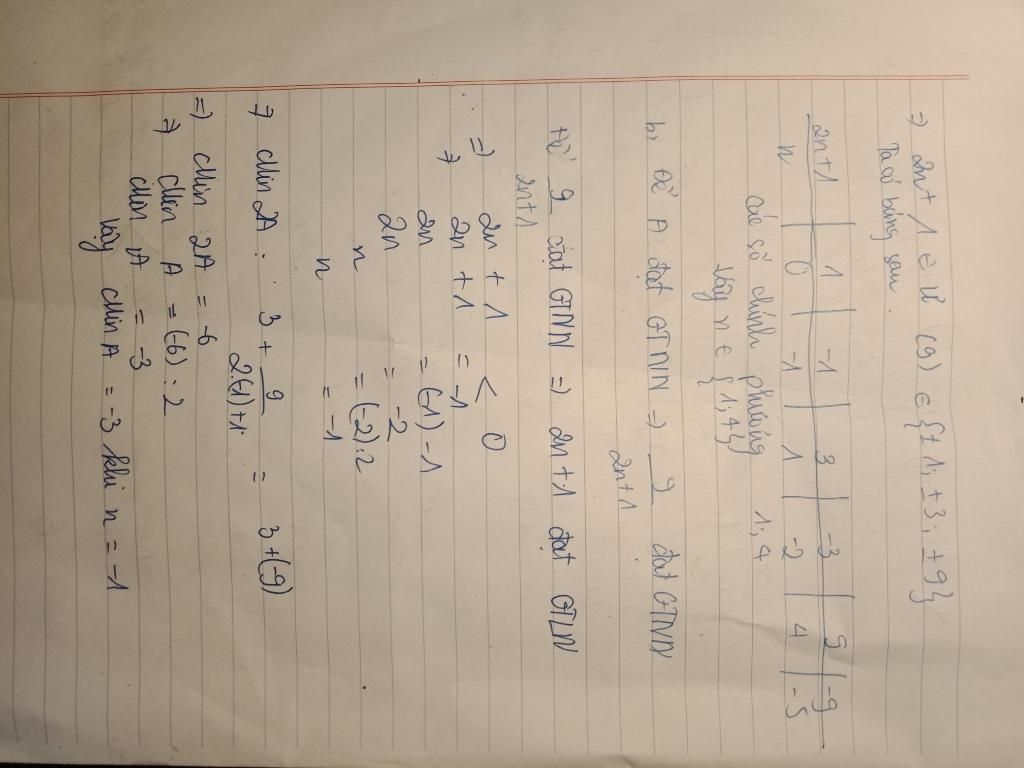 =) 2n + 1 ∈ Ư (9) ∈ {±1; ±3; ±9}
Ta có bảng sau.
2n+1 | 1 | -1 | 3 | -3 | 9 | -9
n | 0 | -1 | 1 | -2 | 4 | -5
các số chính phương 1; 4
Vậy n ∈ {1; 4}
b, Để A đạt GTNN => 9/(2n+1) đạt GTNN
Để 9/(2n+1) đạt GTNN => 2n+1 đạt GTLN
=) 2n + 1 < 0
=> 2n + 1 = -1
2n = (-1) - 1
2n = -2
n = (-2) : 2
n = -1
=> Min 2A : 3 + 9/(2(-1)+1) = 3 + (-9)
=) Min 2A = -6
=> Min A = (-6) : 2
Min A = -3
Vậy Min A = -3 khi n = -1